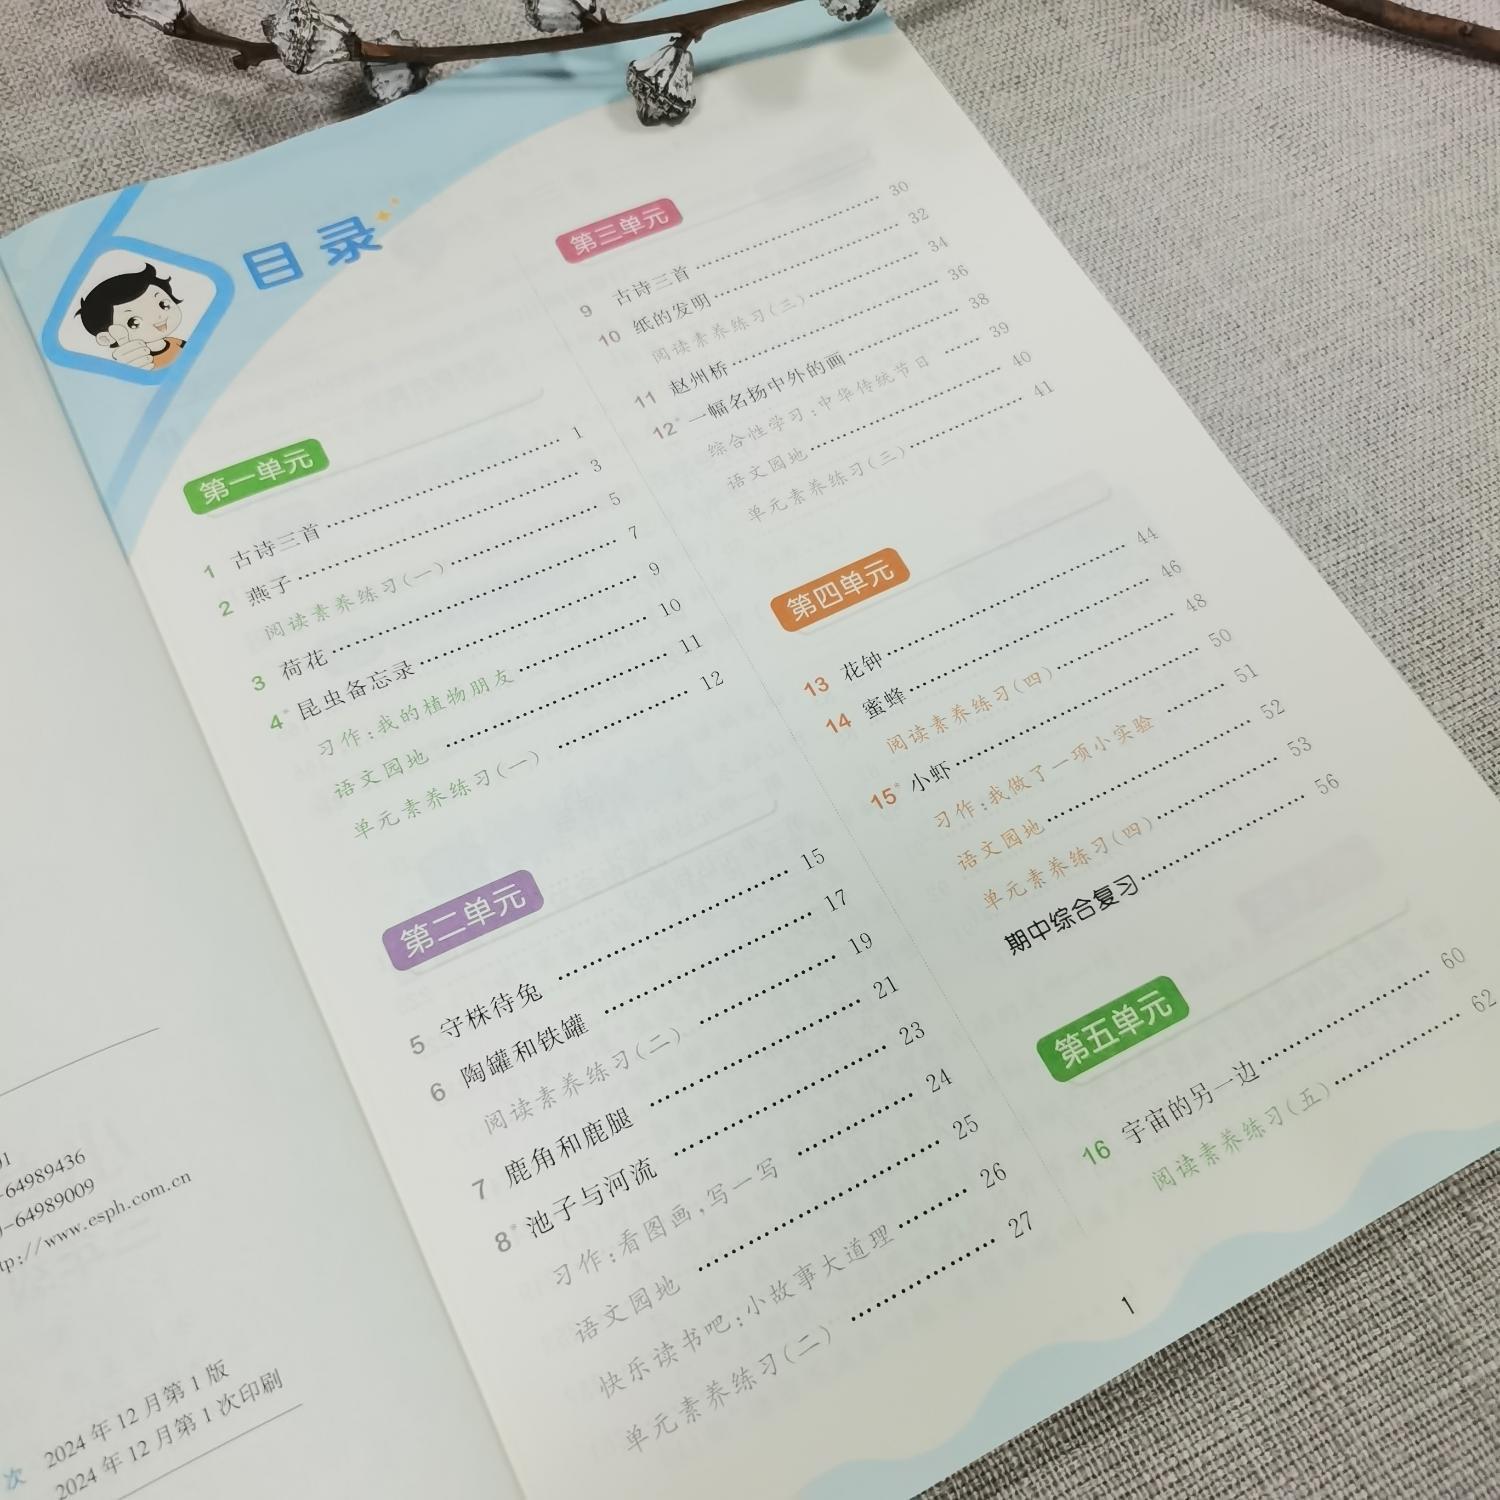 目录
第一单元
1 古诗三首 1
2 燕子 3
阅读素养练习(一) 5
3 荷花 7
4* 昆虫备忘录 9
习作:我的植物朋友 10
语文园地 11
单元素养练习(一) 12
第二单元
5 守株待兔 15
6 陶罐和铁罐 17
阅读素养练习(二) 19
7 鹿角和鹿腿 21
8* 池子与河流 23
习作:看图画,写一写 24
语文园地 25
快乐读书吧:小故事大道理 26
单元素养练习(二) 27
第三单元
9 古诗三首 30
10 纸的发明 32
阅读素养练习(三) 34
11 赵州桥 36
12* 一幅名扬中外的画 38
综合性学习:中华传统节日 39
语文园地 40
单元素养练习(三) 41
第四单元
13 花钟 44
14 蜜蜂 46
阅读素养练习(四) 48
15* 小虾 50
习作:我做了一项小实验 51
语文园地 52
单元素养练习(四) 53
期中综合复习 56
第五单元
16 宇宙的另一边 60
阅读素养练习(五) 62
1
01
-64989436
-64989009
tp://www.esph.com.cn
次 2024年12月第1版
2024年12月第1次印刷